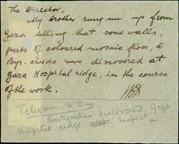 The Director,
My brother rung me up from
Gaza telling that some walls,
parts of coloured mosaic floor, &
Byz. sherds were discovered at
Gaza Hospital ridge, in the course
of the work.
Antiquities Gaza
Hospital ridge